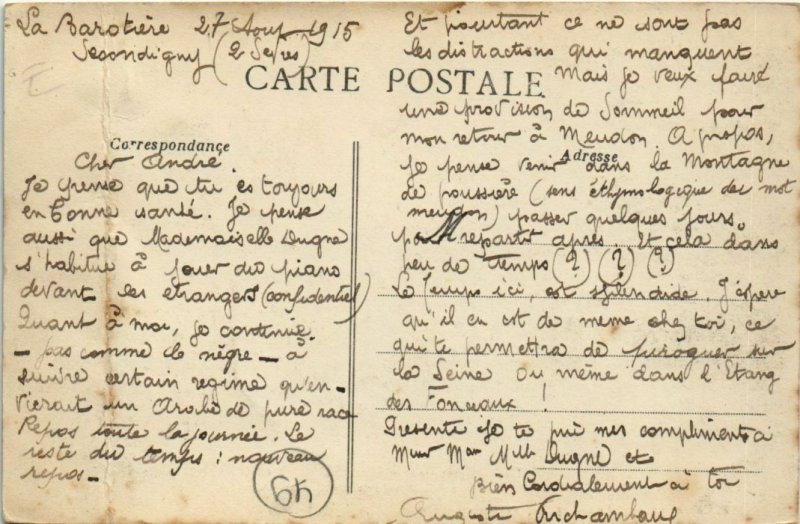 La Barotière 27 Aout 1915
Secondigny (2 Sèvres)
CARTE POSTALE
Correspondance
Cher André.
Je pense que tu es toujours
en bonne santé. Je pense
aussi que Mademoiselle Dugné
s'habitue à jouer du piano
devant les étrangers (confidentiel)
Quant à moi, je continue
— pas comme le nègre — à
suivre certain régime qu'en-
vierait un Arabe de pure race
Repos toute la journée. Le
reste du temps : nouveau
repos —
64
Et pourtant ce ne sont pas
les distractions qui manquent
Mais je veux faire
une provision de Sommeil pour
mon retour à Meudon. A propos,
Adresse
je pense venir dans la Montagne
de poussière (sens éthymologique du mot
meudon) passer quelques jours,
pour repartir après. Et cela dans
peu de temps (?) (?) (?)
Le temps ici, est splendide. J'espère
qu'il en est de même chez toi, ce
qui te permettra de piroguer sur
la Seine ou même dans l'Etang
des Fonceaux !
Présente je te prie mes compliments à
Mlle Dugné et
Bien Cordialement à toi
Auguste